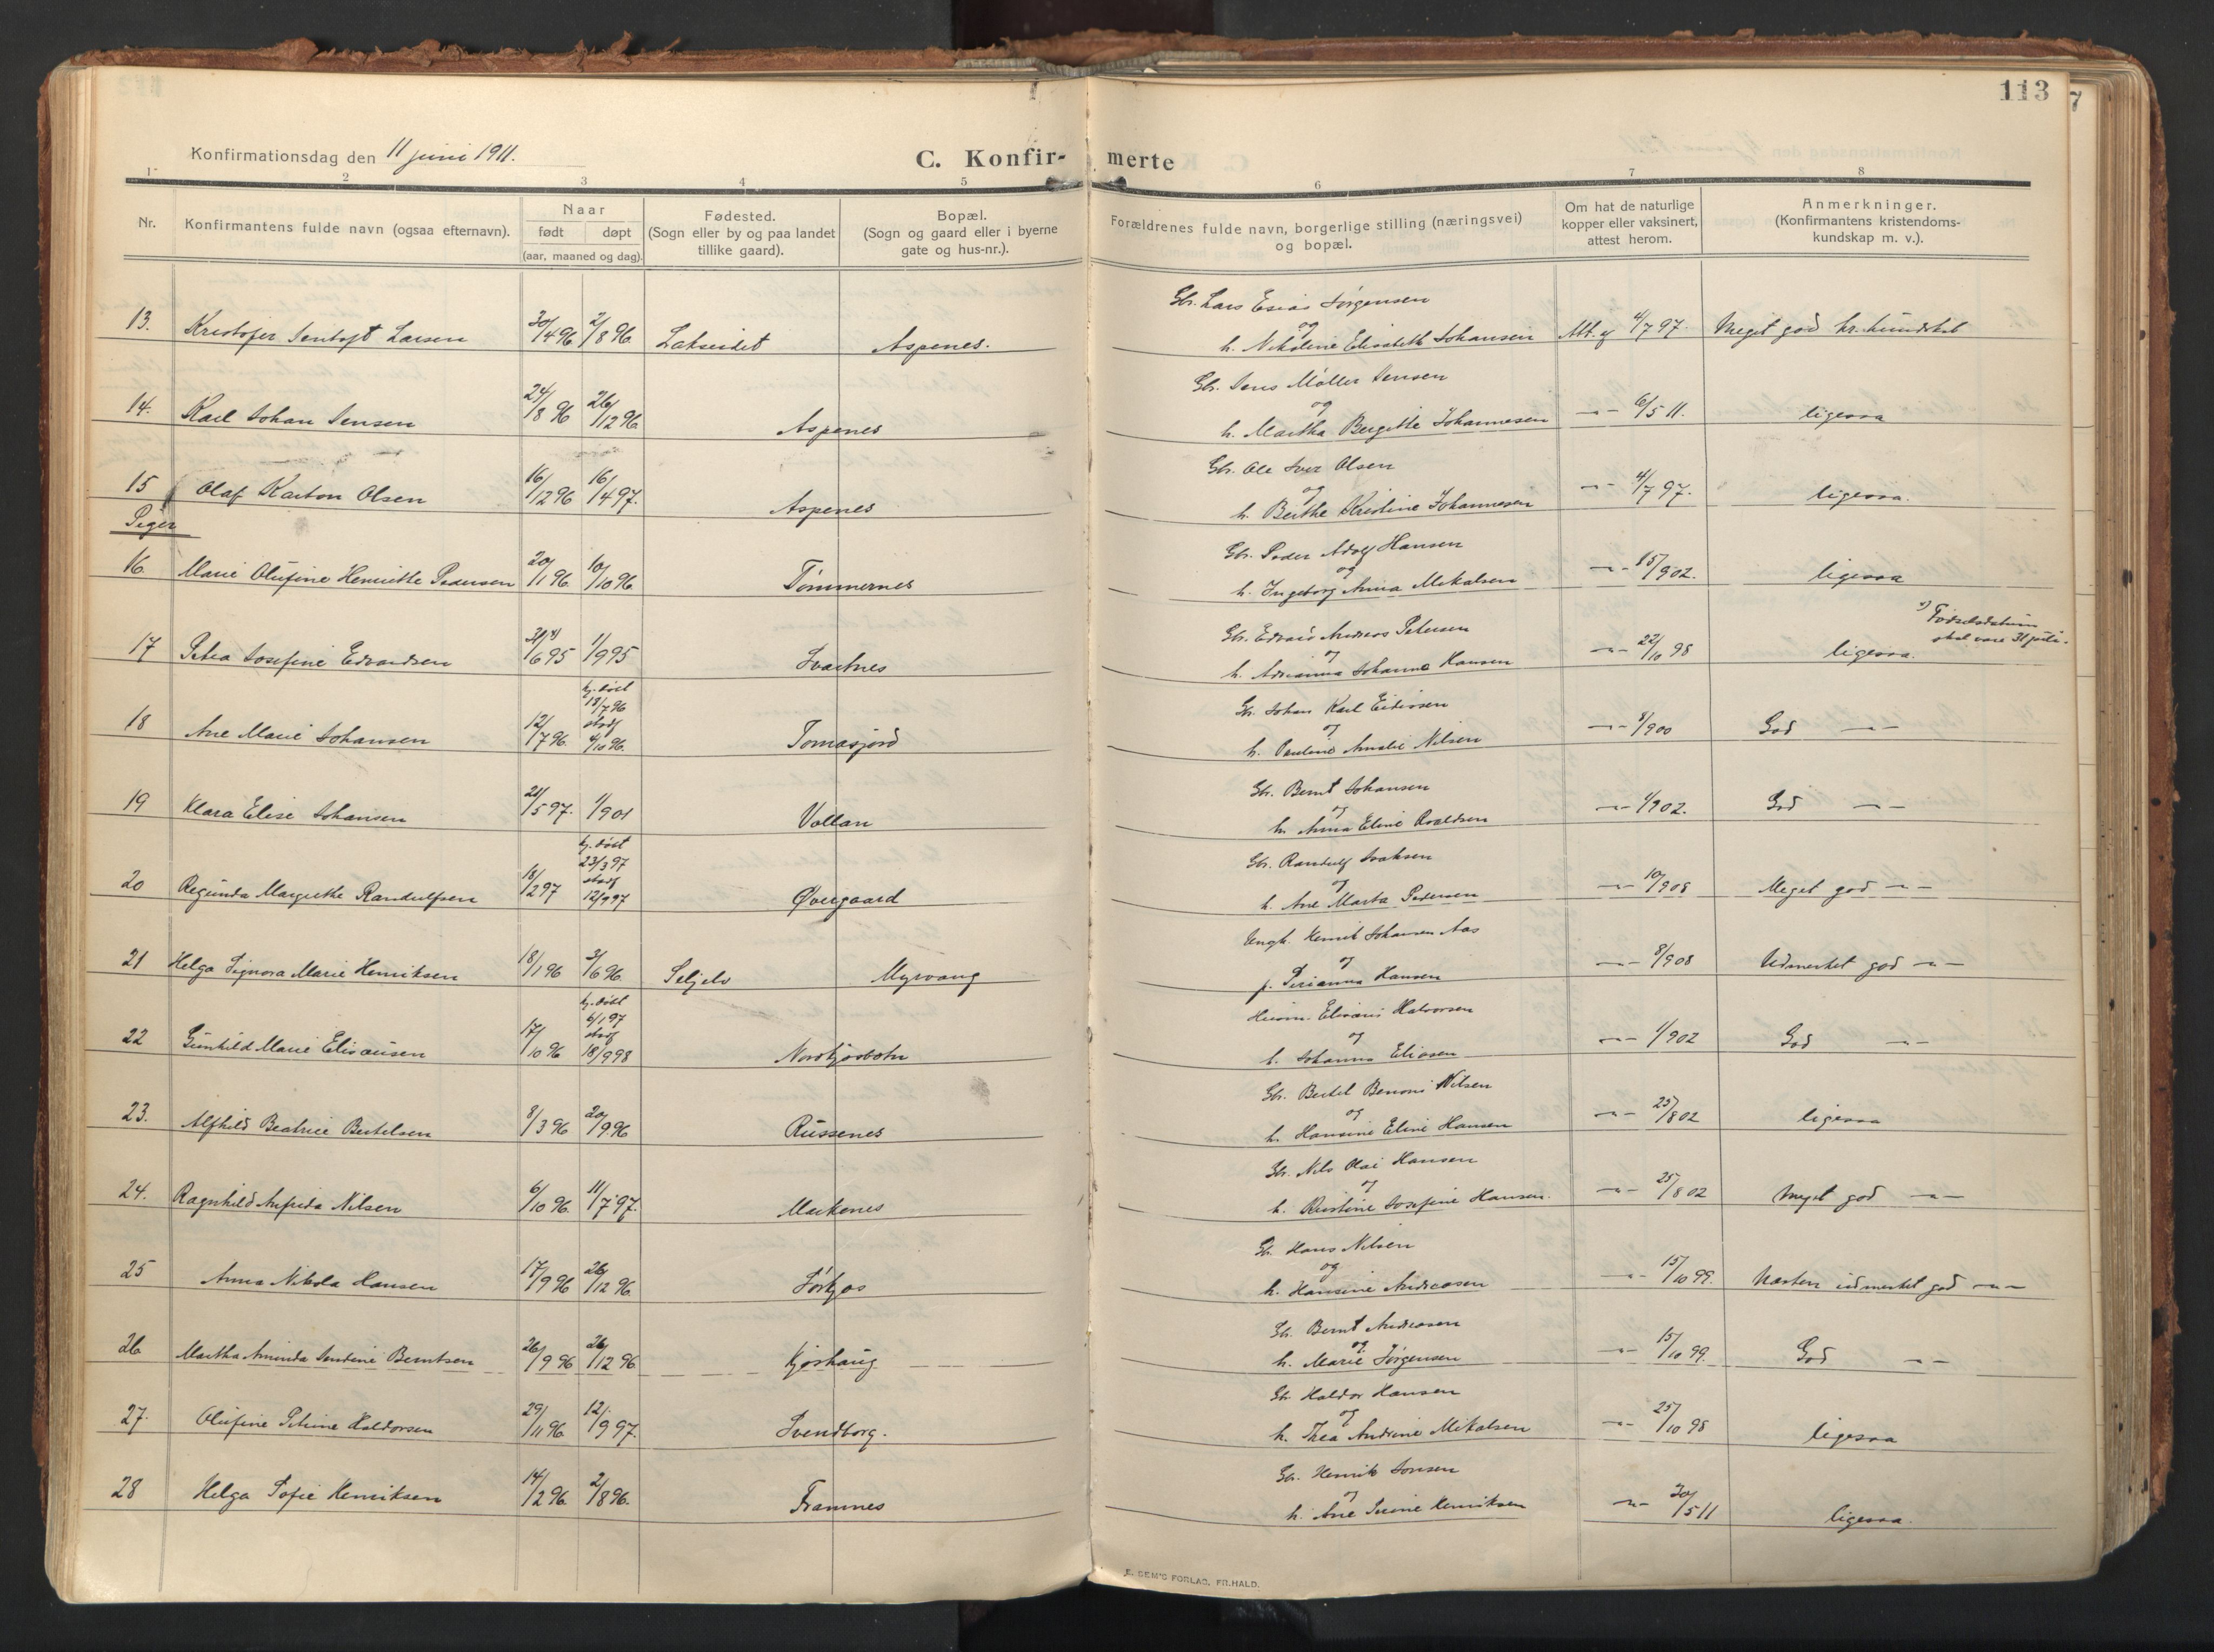 113
Konfirmationsdag den 11 juni 1911.
C. Konfir- merte
1 2 3 4 5 6 7 8
Nr.
Konfirmantens fulde navn (ogsaa efternavn).
Naar
født døpt
(aar, maaned og dag).
Fødested.
(Sogn eller by og paa landet
tillike gaard).
Bopæl.
(Sogn og gaard eller i byerne
gate og hus-nr.).
Forældrenes fulde navn, borgerlige stilling (næringsvei)
og bopæl.
Om hat de naturlige
kopper eller vaksinert,
attest herom.
Anmerkninger.
(Konfirmantens kristendoms-
kundskap m. v.).
Gbr. Lars Esias Jørgensen
og
13. Kristofer Jentoft Larsen 30/4 96 2/8 96 Lakseidet Aspenes. h. Nikoline Elisabeth Johansen Att. af 4/7 97. Meget god kr. kundskab
Gbr. Jens Møller Jensen
og
14. Karl Johan Jensen 24/8 96 26/12 96 Aspenes h. Martha Bergitte Johannesen —"— 6/5 11. ligesaa
Gbr. Ole Olsen
og
15 Olaf Karton Olsen 16/12 96 16/4 97. Aspenes h. Berthe Kristine Johannesen —"— 4/7 97. ligesaa.
Piger
Gbr. Peder Adolf Hansen
og
16. Marie Olufine Henriette Pedersen 20/1 96 10/10 96 Tømmernes h. Ingeborg Anna Mikalsen —"— 15/9 02. ligesaa
*) Fødselsdatum
skal være 31 juli.
Gbr. Edvard Andreas Petersen
og
17 Petra Josefine Edvardsen 31/6 95 *) 1/9 95 Svartnes h. Adrianna Johanna Hansen —"— 22/10 98 ligesaa.
hj. døbt
18/7 96
stadf
Gbr. Johan Karl Eidissen
og
18 Ane Marie Johansen 12/7 96. 4/10 96. Tomasjord h. Pauline Amalie Nilsen —"— 8/9 00 God —"—
Gbr. Bernt Johansen
og
19 Klara Elise Johansen 21/5 97. 1/9 01 Vollan h. Anna Eline —"— 4/9 02. God —"—
hj. døbt
23/3 97
stadf
Gbr. Randulf Isaksen
og
20 Regunda Margrethe Randulfsen 18/2 97 12/9 97 Øvergaard h. Ane Marta Pedersen —"— 10/9 08 Meget god —"—
Ungk. Henrik Johansen Aas
og
21 Helga Signora Marie Henriksen 18/1 96 3/6 96. Seljelv Myrvang p. Hansen —"— 8/9 08 Udmerket god —"—
hj. døbt
6/1 97
stadf
Husm. Elisæus Halvorsen
og
22 Gunhild Marie Elisæusen 17/10 96 18/9 98 Nordkjosbotn h. Johanna Eliasen —"— 1/9 02 God —"—
Gbr. Bertel Benoni Nilsen
og
23. Alfhild Beatrice Bertelsen 8/3 96 20/9 96 Russenes h. Hansine Eline Hansen —"— 25/8 02 ligesaa
Gbr. Nils Olai Hansen
og
24. Ragnhild Alfrida Nilsen 6/10 96. 11/7 97. Markenes h. Kristine Josefine Hansen. —"— 25/8 02 Meget god —"—
Gb. Hans Nilsen
og
25 Anna Nikola Hansen 17/9 96 26/12 96. Sørkjos h. Hansine Andreasen —"— 15/10 99. Næsten udmerket god —"—
Gb. Bernt Andreasen
og
26 Martha Aminda Jentine Berntsen 26/9 96 26/12 96 Kjoshaug h. Marie Jørgensen —"— 15/10 99. God —"—
Gbr. Haldor Hansen
og
27. Olufine Petrine Haldorsen 29/11 96 12/9 97. Svendborg. h. Thea Andrine Mikalsen —"— 25/10 98 ligesaa
Gbr. Henrik Jonsen
og
28 Helga Sofie Henriksen 14/2 96. 2/8 96. Framnes h. Ane Henriksen —"— 30/5 11 ligesaa.
E. SEM'S FORLAG, FR.HALD.